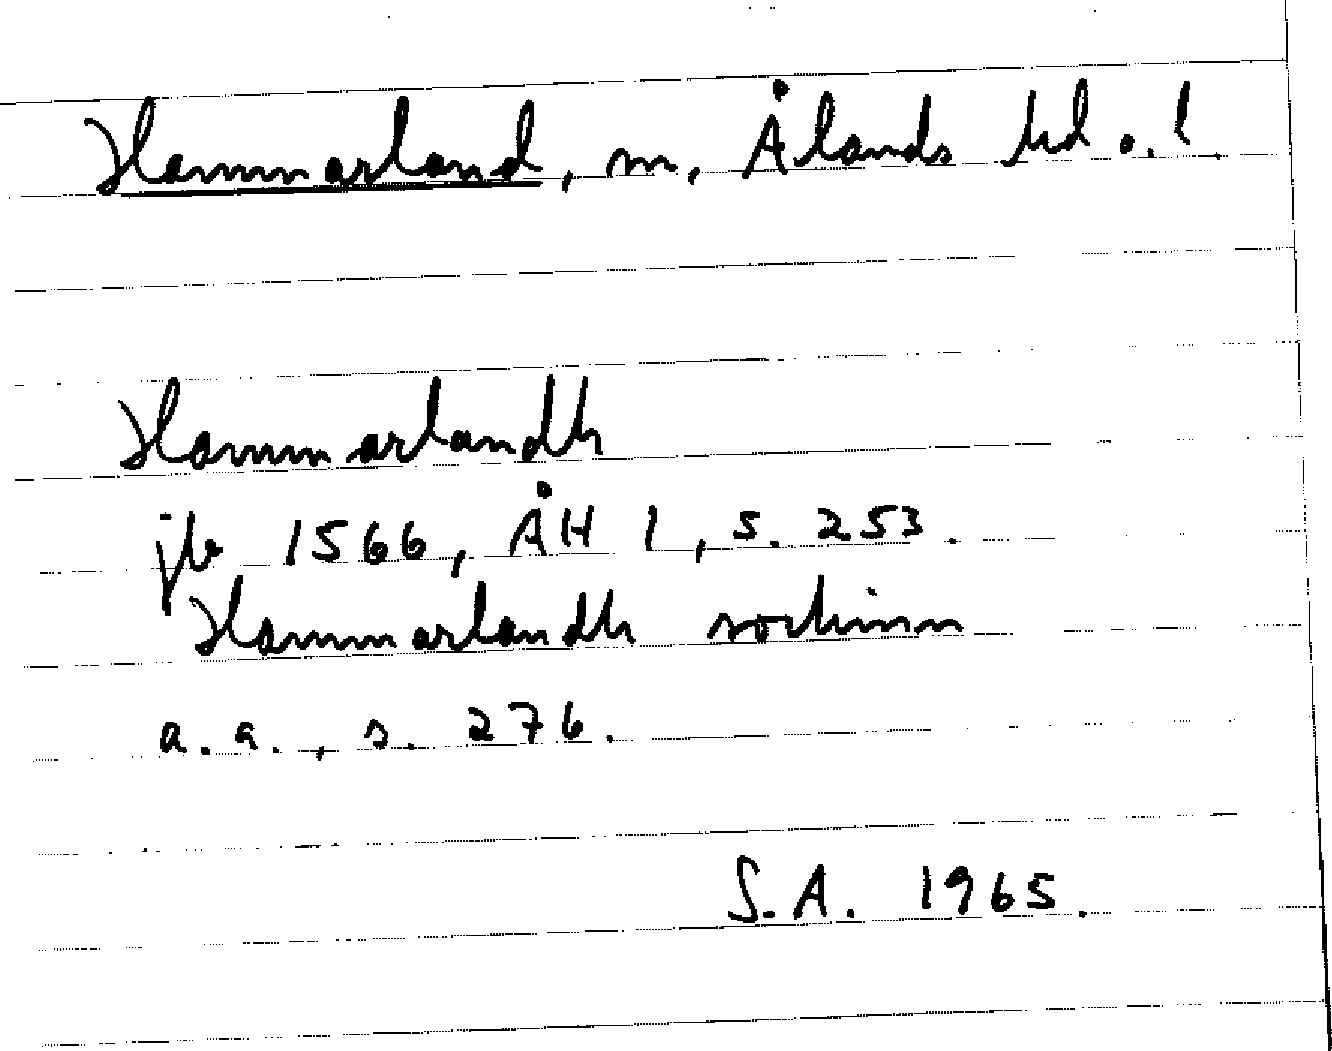 Hammarland, sn, Ålands hd o. l.
Hammarlandh
jb 1566, ÅH 1, s. 253.
Hammarlandh sochinn
a. a., s. 276.
S.A. 1965.